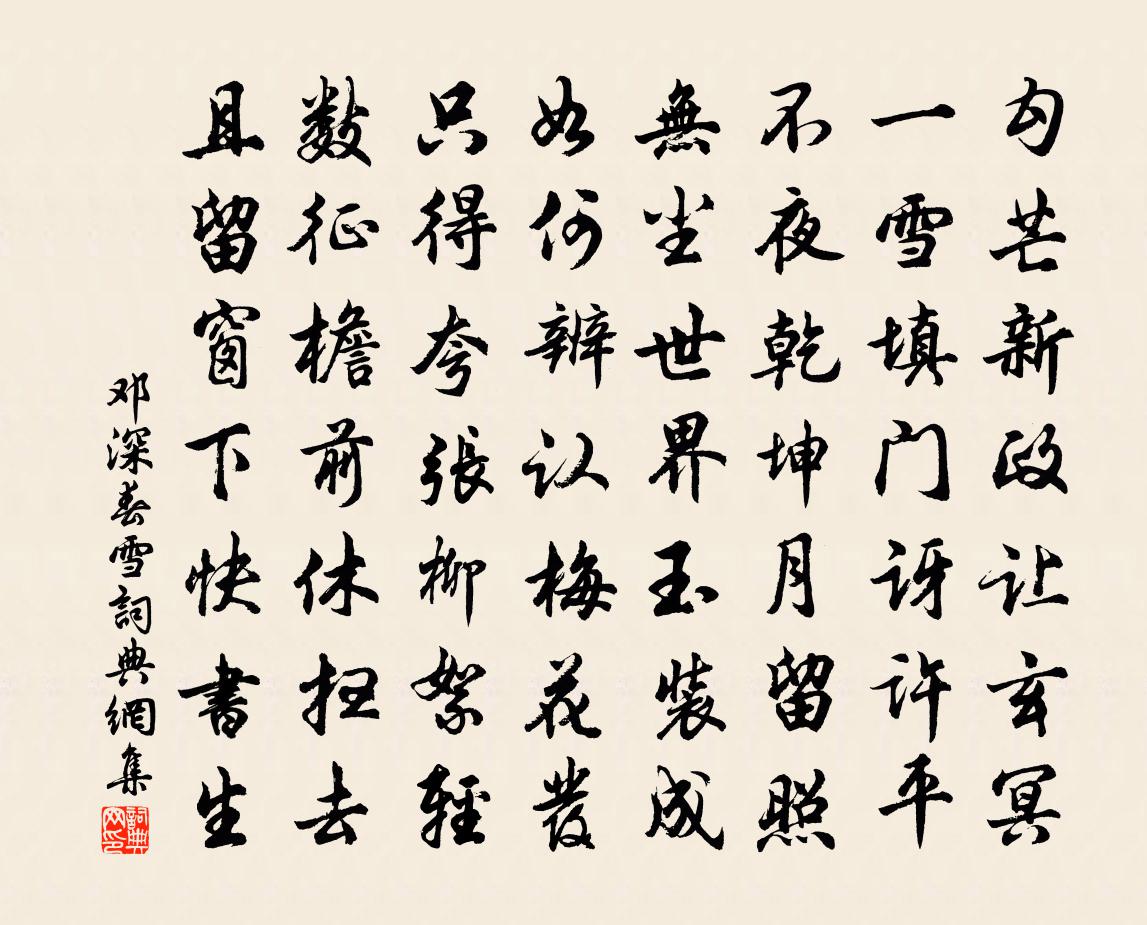 勾芒新政让玄冥
一雪填门讶许平
不夜乾坤月留照
無尘世界玉装成
如何辨认梅花發
只得夸張柳絮輕
数征檐前休扫去
且留窗下快書生
邓深春雪詞典網集
詞典网印